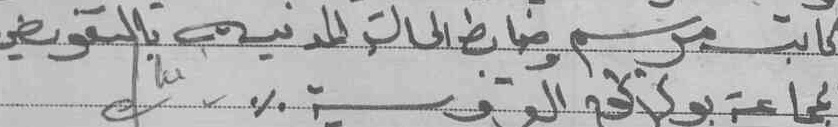 كاتب مرسم وضابط الحالة المدنية بالتفويض
لجماعة بوكركوح الترفسية